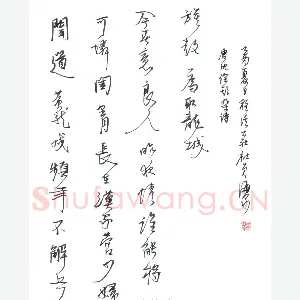 聞道黄龍戍頻年不解兵
可憐閨裏月長在漢家營少婦
今春意良人昨夜情誰能將
旗鼓一為取龍城
唐沈佺期雜詩
Shufawang.CN